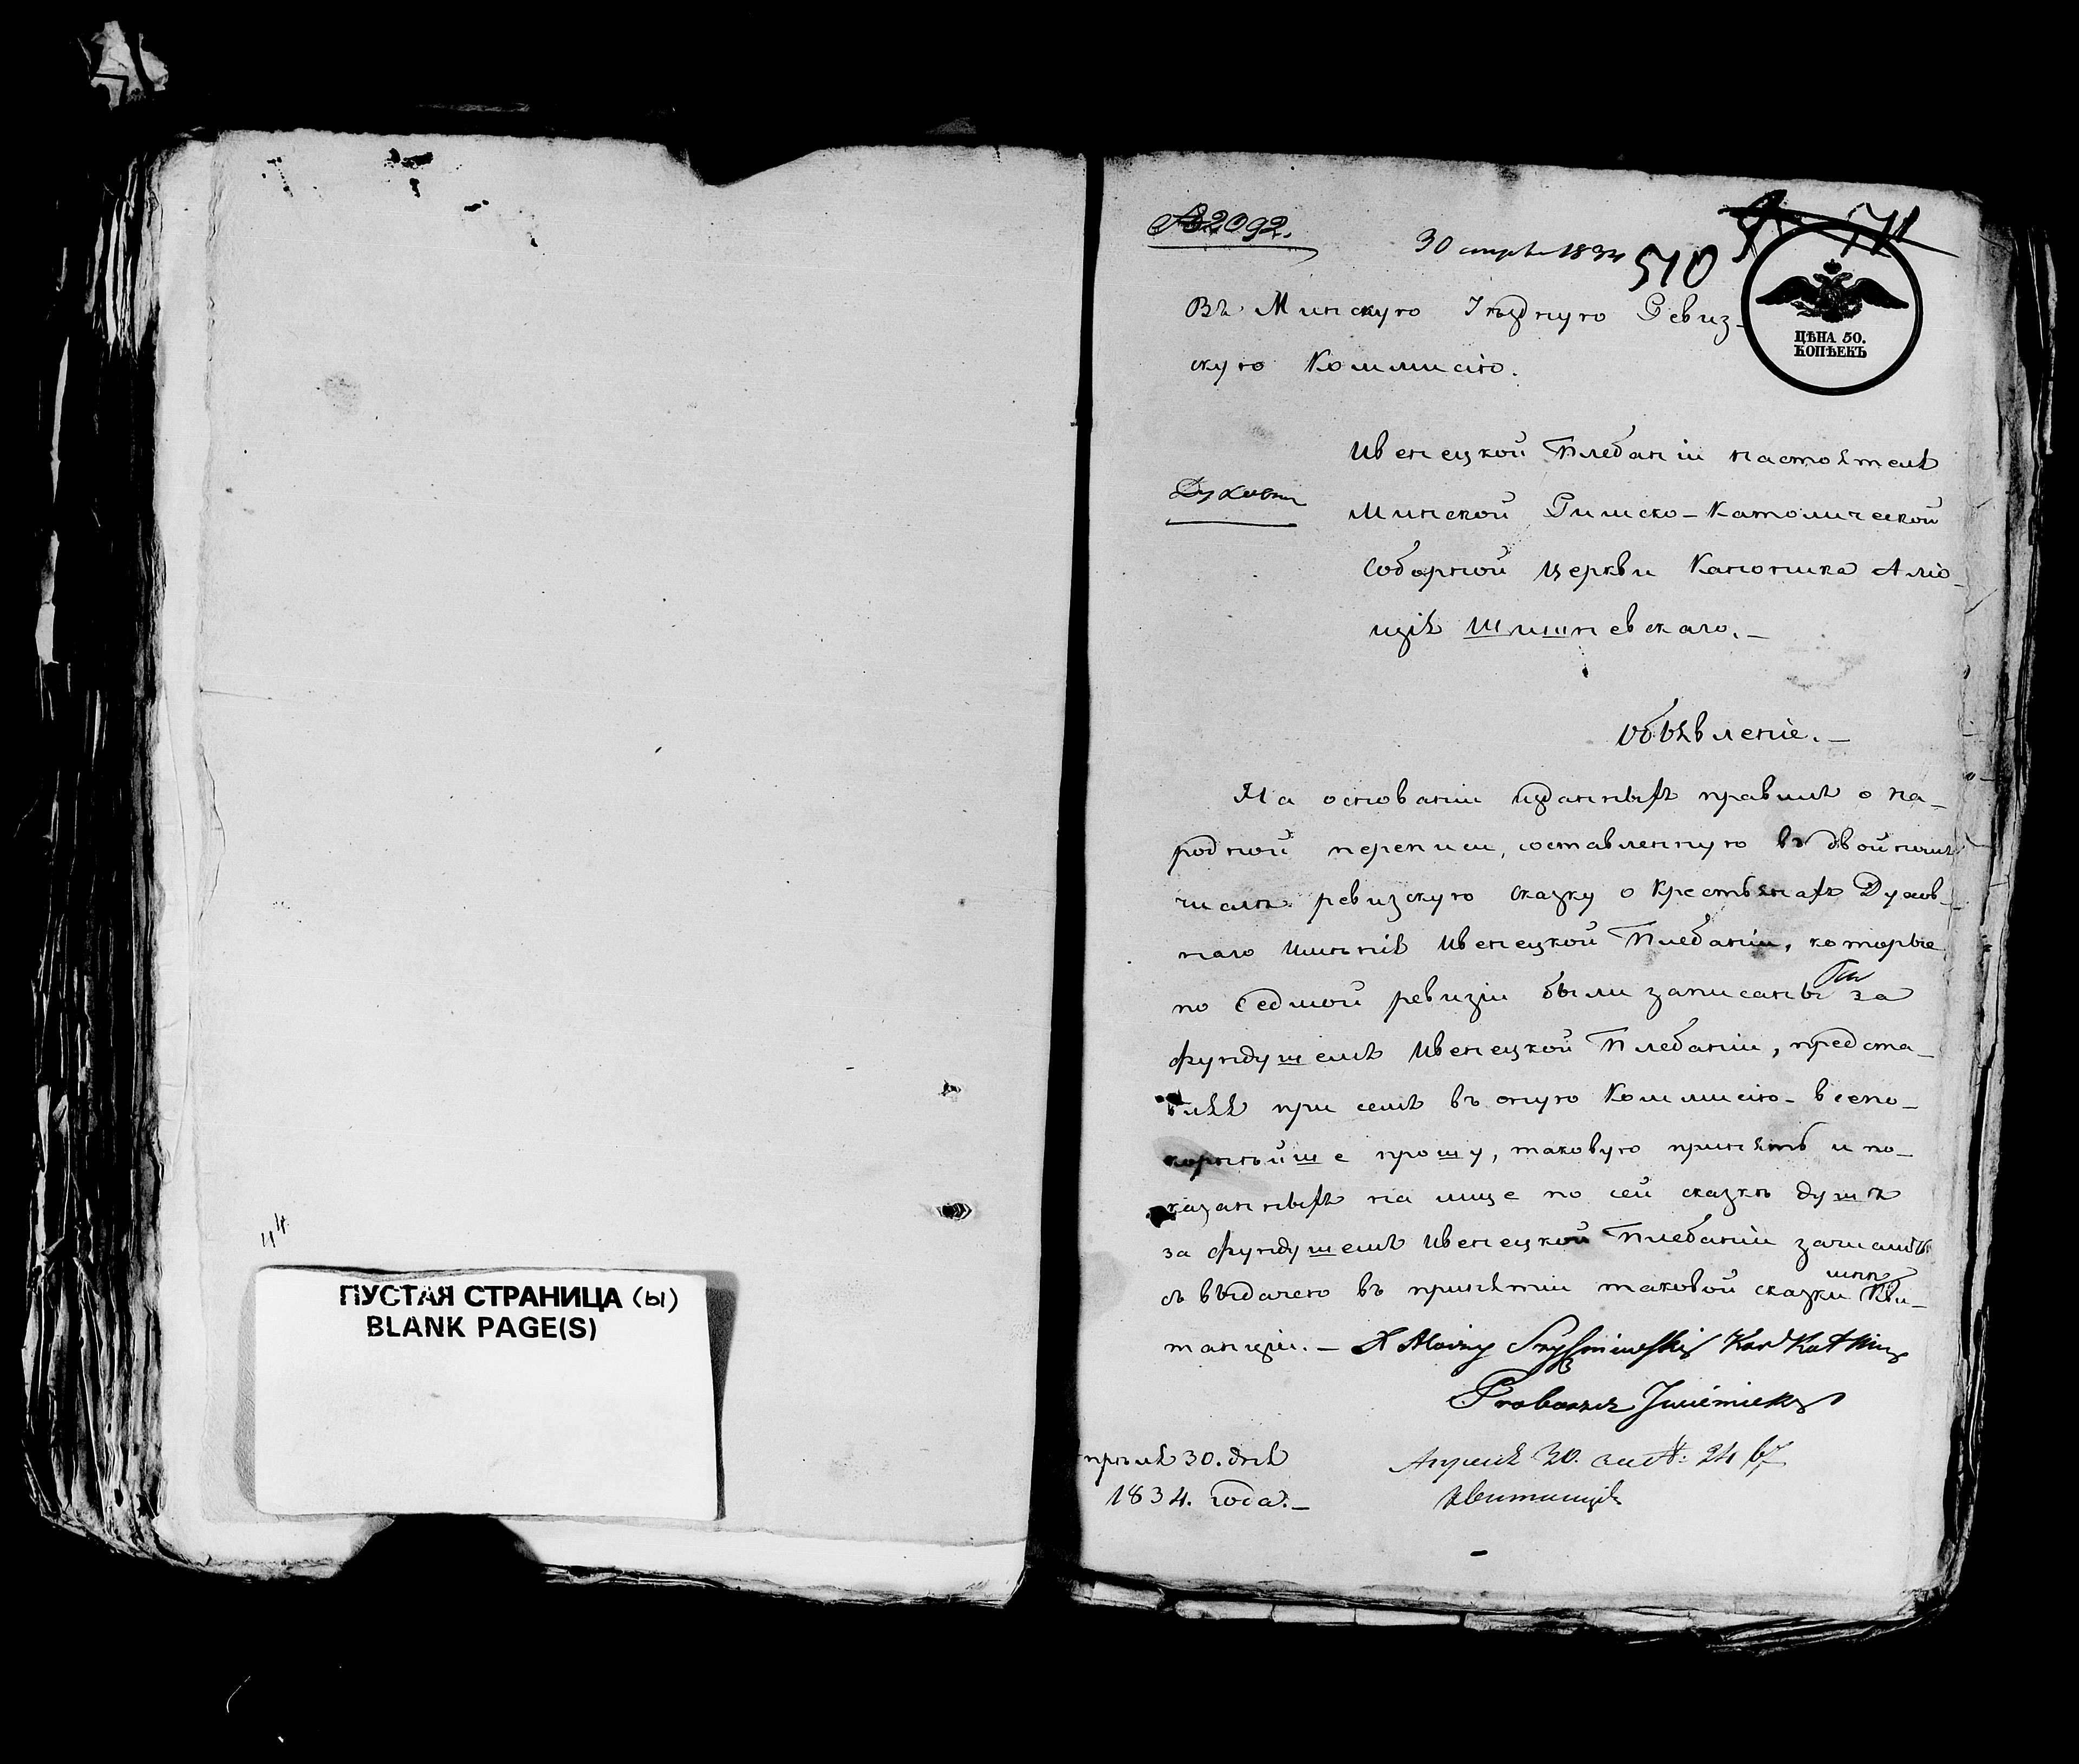 44
ПУСТАЯ СТРАНИЦА (Ы)
BLANK PAGE(S)
№2092.
30 апрѣля 1834
510
ЦѢНА 50.
КОПѢЕКЪ
Въ Минскую Уѣздную Ревиз-
скую Коммисію.
Духовн
Ивенецкой Плебаніи настоятеля
Минской Римско-Католической
Соборной Церкви Каноника Аліо-
изія Шишневскаго.—
Объявленіе.—
На основаніи изданныхъ правилъ о на-
родной переписи, составленную въ двойномъ
числѣ ревизскую сказку о крестьянахъ Духов-
наго имѣнія Ивенецкой Плебаніи, которые
по Седмой ревизіи были записаны за
фундушемъ Ивенецкой Плебаніи, предста-
вляя при семъ въ оную Коммисію- всепо-
корнѣйше прошу, таковую принять и по-
казанныхъ на лице по сей сказкѣ душъ
за фундушемъ Ивенецкой Плебаніи зачислить
съ выдачею въ принятіи таковой сказки мнѣ Кви-
танціи.— X Aloizy Kan Kat Min
Proboszcz Iwieniecki
прѣля 30. дня
1834. года.—
Апрѣля 30.
Квитанція